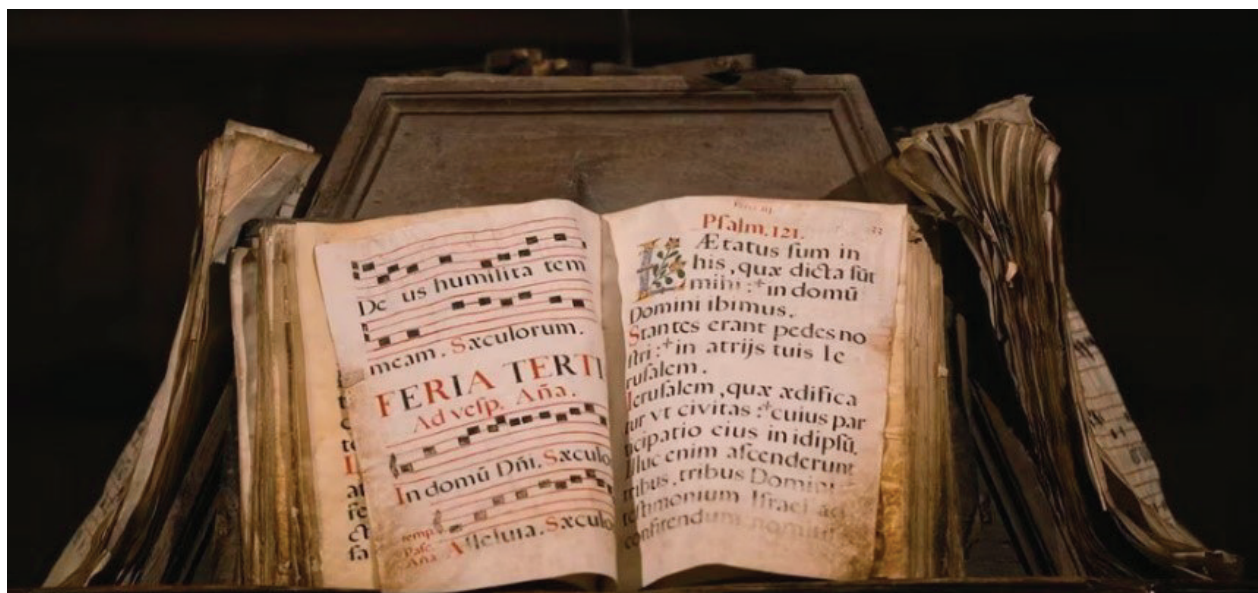 De us humilita tem
meam. Sæculorum.
FERIA TERTI
Ad veſp. Aña.
In domū Dñi. Sæculo
temp.
Paſc.
Aña. Alleluia. Sæculo
Pſalm. 121.
LÆtatus ſum in
his, quæ dicta ſūt
mihi :+ in domū
Domini ibimus.
Stantes erant pedes no
ſtri :+ in atrijs tuis Ie
ruſalem.
Ieruſalem, quæ ædifica
tur vt civitas :+ cuius par
ticipatio eius in idipſū.
Illuc enim aſcenderunt
tribus, tribus Domini
teſtimonium Iſrael ad
confitendum nomini